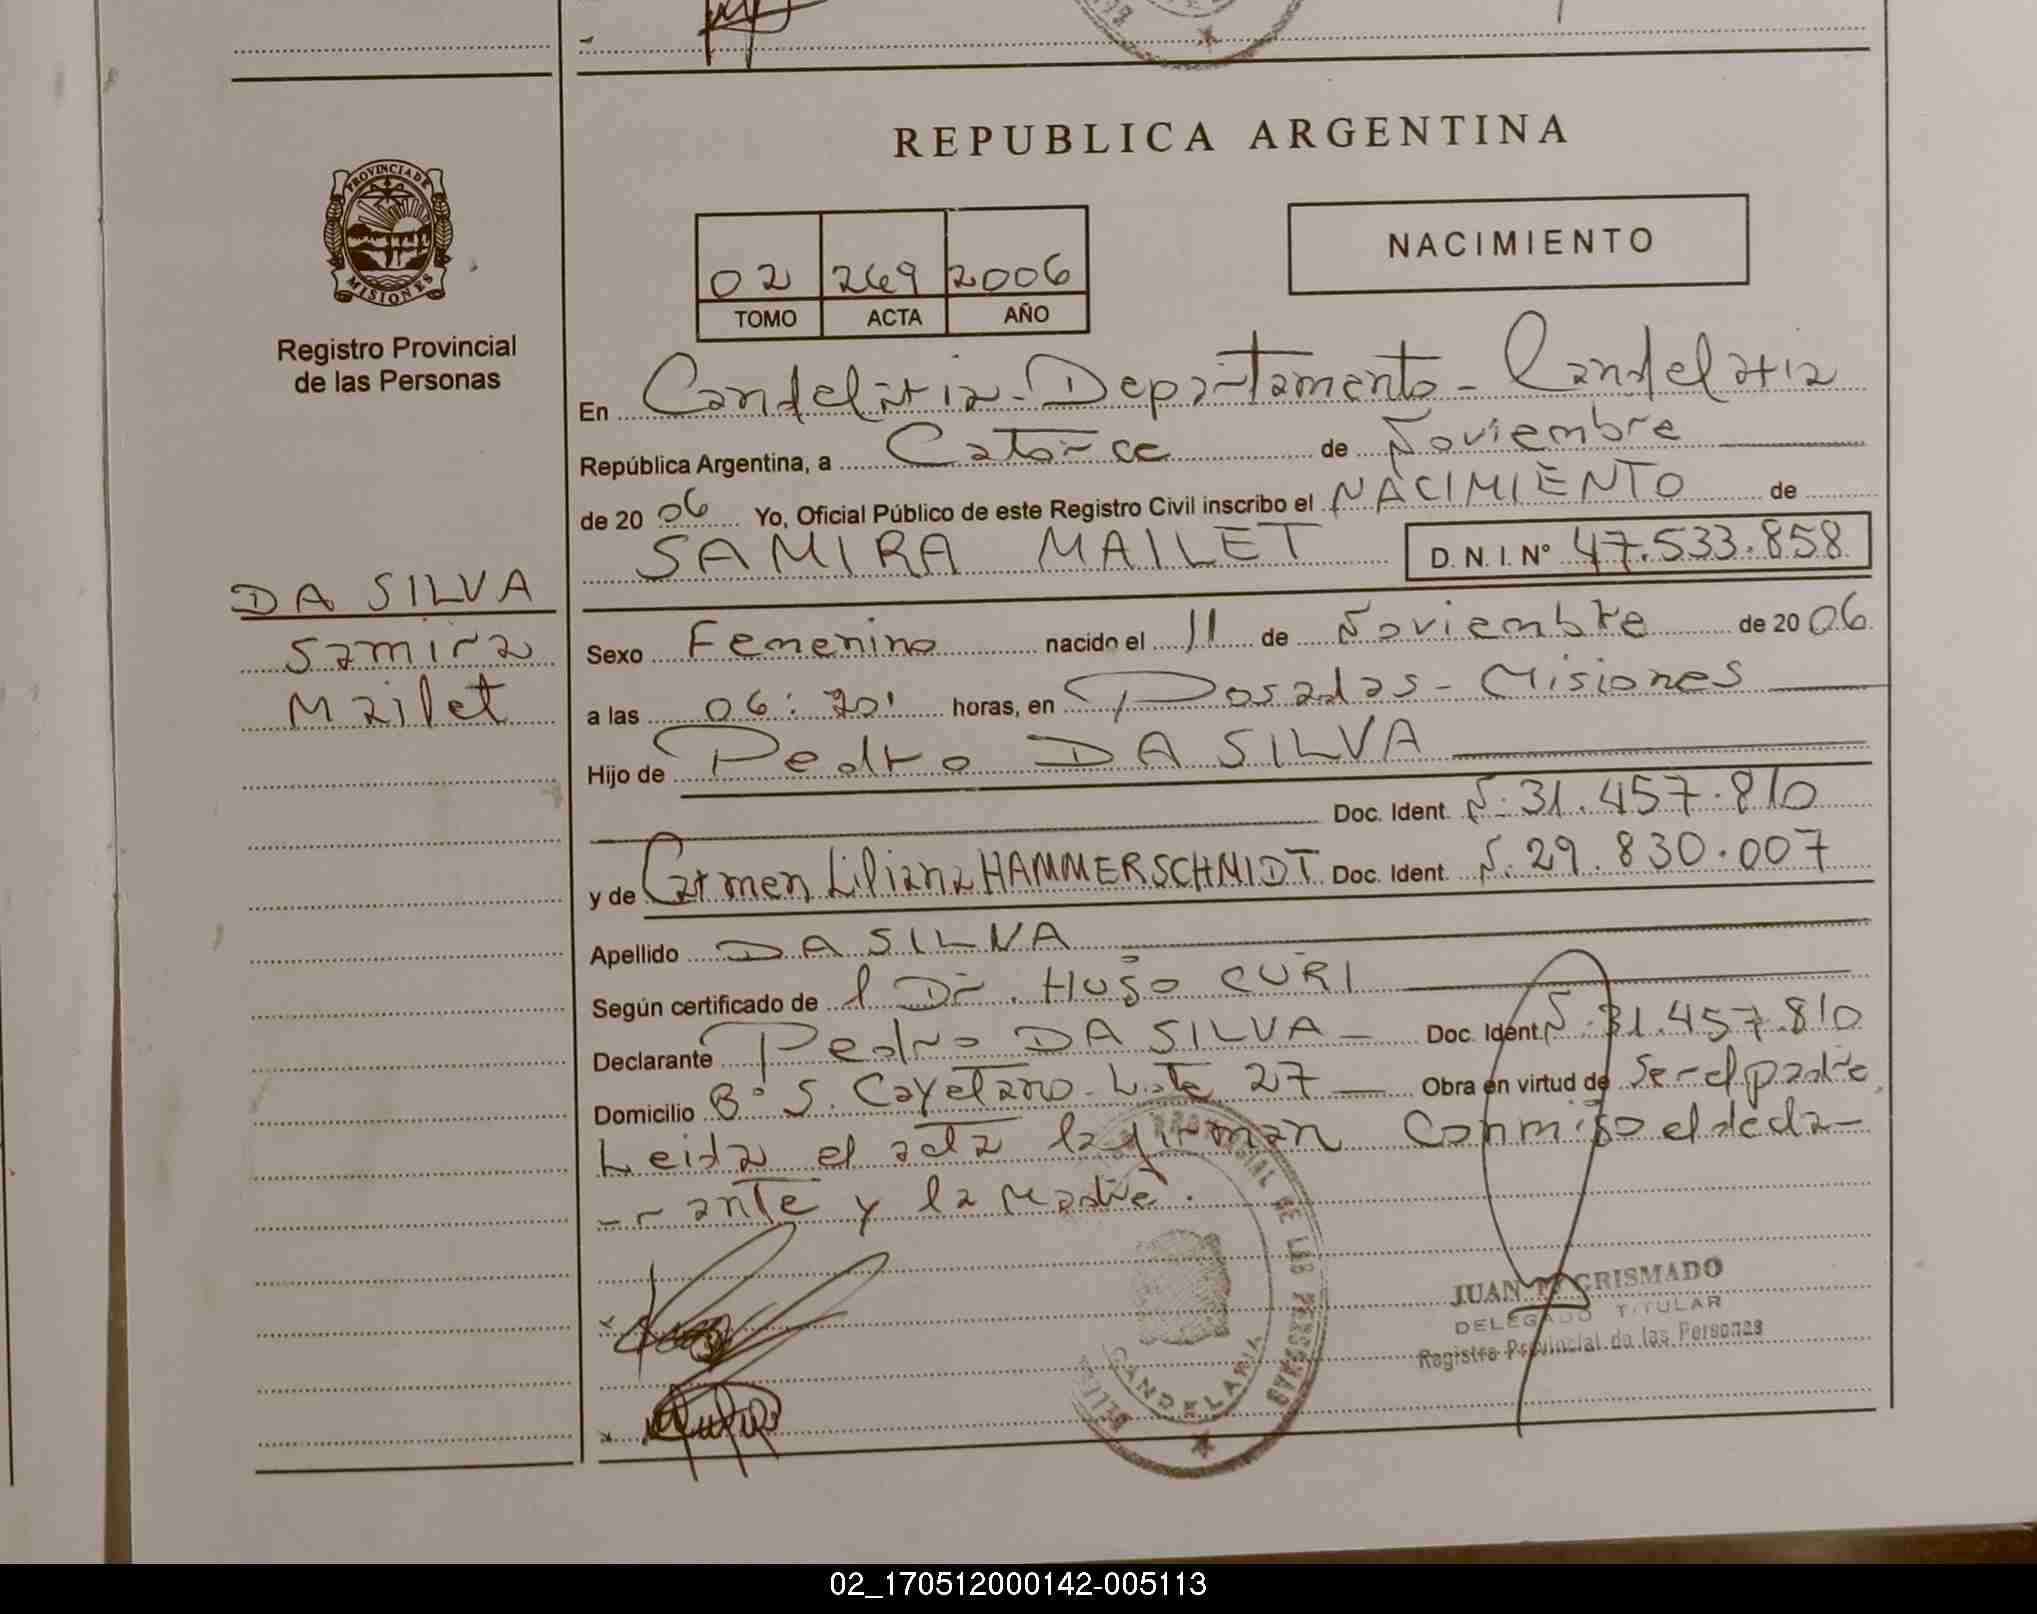 REPUBLICA ARGENTINA
PROVINCIA DE MISIONES
Registro Provincial
de las Personas
02 269 2006
TOMO ACTA AÑO
NACIMIENTO
En Candelaria - Departamento - Candelaria
República Argentina, a Catorce de Noviembre
de 20 06 Yo, Oficial Público de este Registro Civil inscribo el NACIMIENTO de
SAMIRA MAILET D. N. I. Nº 47.533.858
DA SILVA
Samira
Mailet
Sexo Femenino nacido el 11 de Noviembre de 20 06
a las 06: horas, en Posadas - Misiones
Hijo de Pedro DA SILVA
Doc. Ident. N: 31.457.810
y de Carmen Liliana HAMMERSCHMIDT Doc. Ident. N. 29.830.007
Apellido DA SILVA
Según certificado de l Dr. Hugo CURI
Declarante Pedro DA SILVA - Doc. Ident. N. 31.457.810
Domicilio Bº S. Cayetano - Lote 27 - Obra en virtud de Ser el padre,
Leida el acta la firman Conmigo el decla-
-rante y la Madre.
JUAN GRISMADO
DELEGADO TITULAR
Registro Provincial de las Personas
PROVINCIAL DE LAS PERSONAS
CANDELARIA
02_170512000142-005113